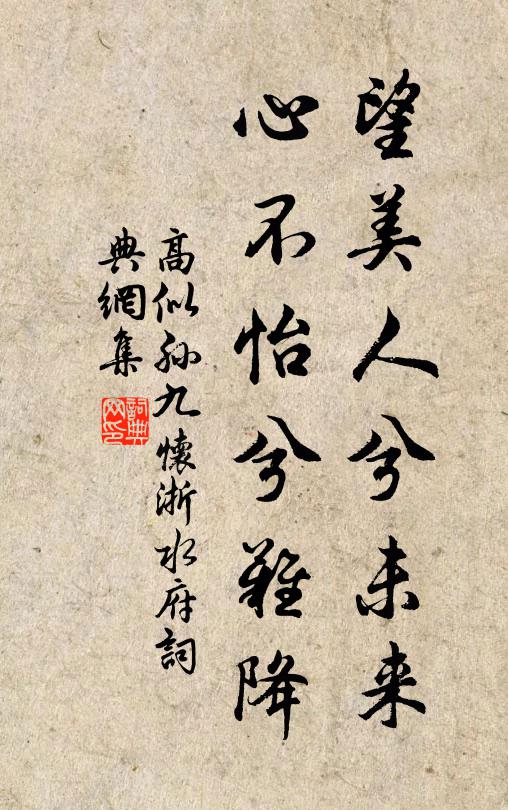 望美人兮未来
心不怡兮難降
高似孙九懷浙水府詞
典網集
詞典
网印